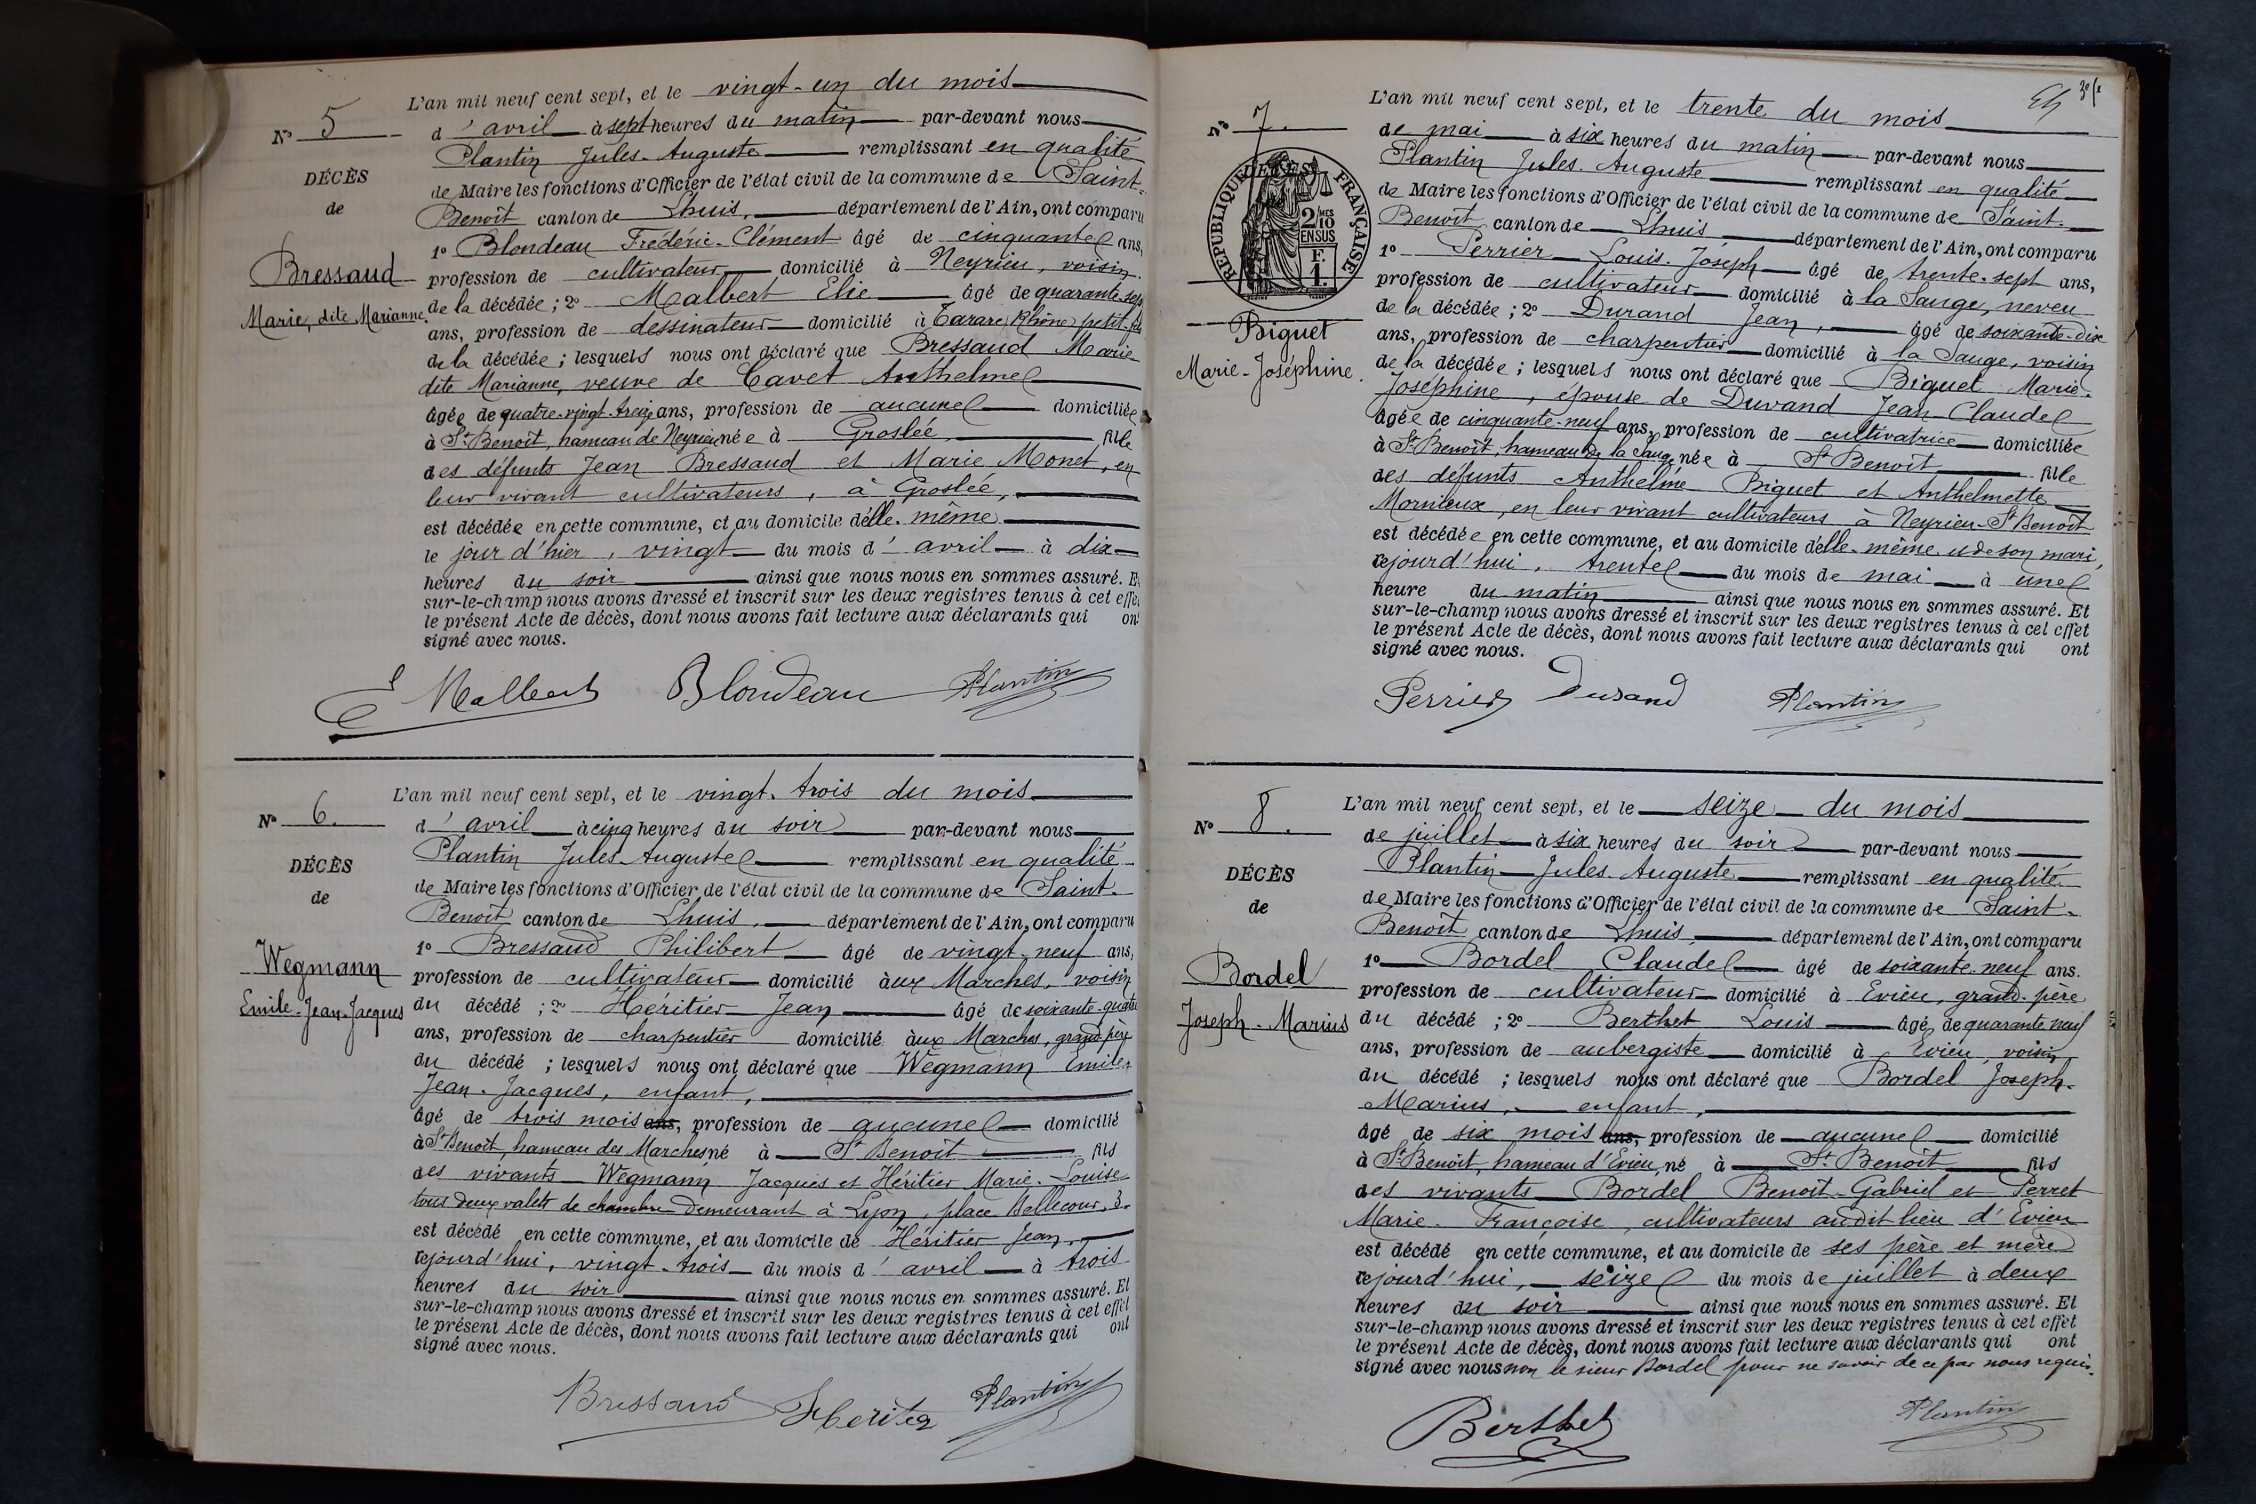 L'an mil neuf cent sept, et le vingt-un du mois
N° 5
d'avril à sept heures du matin par-devant nous
Plantin Jules-Auguste remplissant en qualité
DÉCÈS
de Maire les fonctions d'Officier de l'état civil de la commune de Saint-
de
Benoît canton de Lhuis, département de l'Ain, ont comparu
1° Blondeau Frédéric-Clément âgé de cinquante ans,
Bressaud
profession de cultivateur domicilié à Neyrieu, voisin
Marie, dite Marianne
de la décédée ; 2° Malbert Elie âgé de quarante-sept
ans, profession de dessinateur domicilié à Tarare (Rhône) petit-fils
de la décédée ; lesquels nous ont déclaré que Bressaud Marie
dite Marianne, veuve de Cavet Anthelme
âgée de quatre-vingt-treize ans, profession de aucune domiciliée
à St Benoît, hameau de Neyrieu née à Groslée, fille
des défunts Jean Bressaud et Marie Monet, en
leur vivant cultivateurs, à Groslée,
est décédée en cette commune, et au domicile d'elle-même
le jour d'hier, vingt du mois d'avril à dix
heures du soir ainsi que nous nous en sommes assuré. Et
sur-le-champ nous avons dressé et inscrit sur les deux registres tenus à cet effet
le présent Acte de décès, dont nous avons fait lecture aux déclarants qui ont
signé avec nous.
E Malbert Blondeau Plantin
L'an mil neuf cent sept, et le vingt-trois du mois
N° 6.
d'avril à cinq heures du soir par-devant nous
Plantin Jules-Auguste remplissant en qualité
DÉCÈS
de Maire les fonctions d'Officier de l'état civil de la commune de Saint-
de
Benoît canton de Lhuis, département de l'Ain, ont comparu
1° Bressaud Philibert âgé de vingt-neuf ans,
Wegmann
profession de cultivateur domicilié aux Marches, voisin
Emile-Jean-Jacques
du décédé ; 2° Héritier Jean âgé de soixante-quatre
ans, profession de charpentier domicilié aux Marches, grand-père
du décédé ; lesquels nous ont déclaré que Wegmann Emile-
Jean-Jacques, enfant,
âgé de trois mois ans, profession de aucune domicilié
à St Benoît, hameau des Marches né à St Benoît fils
des vivants Wegmann Jacques et Héritier Marie-Louise
tous deux valets de chambre demeurant à Lyon, place Bellecour, 3.
est décédé en cette commune, et au domicile de Héritier Jean,
cejourd'hui, vingt-trois du mois d'avril à trois
heures du soir ainsi que nous nous en sommes assuré. Et
sur-le-champ nous avons dressé et inscrit sur les deux registres tenus à cet effet
le présent Acte de décès, dont nous avons fait lecture aux déclarants qui ont
signé avec nous.
Bressaud Héritier Plantin
L'an mil neuf cent sept, et le trente du mois
N° 7.
de mai à six heures du matin par-devant nous
Plantin Jules-Auguste remplissant en qualité
DÉCÈS
RÉPUBLIQUE FRANÇAISE
2/10 MES EN SUS
F. 1.
de Maire les fonctions d'Officier de l'état civil de la commune de Saint-
Benoît canton de Lhuis département de l'Ain, ont comparu
1° Perrier Louis-Joseph âgé de trente-sept ans,
profession de cultivateur domicilié à la Sauge, neveu
de la décédée ; 2° Durand Jean, âgé de soixante-dix
Biguet
ans, profession de charpentier domicilié à la Sauge, voisin
Marie-Joséphine.
de la décédée ; lesquels nous ont déclaré que Biguet Marie-
Joséphine, épouse de Durand Jean-Claude
âgée de cinquante-neuf ans, profession de cultivatrice domiciliée
à St Benoît, hameau de la Sauge née à St Benoît fille
des défunts Anthelme Biguet et Anthelmette
Mornieux, en leur vivant cultivateurs à Neyrieu-St Benoît
est décédée en cette commune, et au domicile d'elle-même et de son mari,
cejourd'hui, trente du mois de mai à une
heure du matin ainsi que nous nous en sommes assuré. Et
sur-le-champ nous avons dressé et inscrit sur les deux registres tenus à cet effet
le présent Acte de décès, dont nous avons fait lecture aux déclarants qui ont
signé avec nous.
Perrier Durand Plantin
L'an mil neuf cent sept, et le seize du mois
N° 8.
de juillet à six heures du soir par-devant nous
Plantin Jules-Auguste remplissant en qualité
DÉCÈS
de Maire les fonctions d'Officier de l'état civil de la commune de Saint-
de
Benoît canton de Lhuis, département de l'Ain, ont comparu
1° Bordel Claude âgé de soixante-neuf ans.
Bordel
profession de cultivateur domicilié à Evieu, grand-père
Joseph-Marius
du décédé ; 2° Berthet Louis âgé de quarante neuf
ans, profession de aubergiste domicilié à Evieu, voisin
du décédé ; lesquels nous ont déclaré que Bordel Joseph-
Marius, enfant,
âgé de six mois ans, profession de aucune domicilié
à St Benoît, hameau d'Evieu, né à St Benoît fils
des vivants Bordel Benoît-Gabriel et Perret
Marie-Françoise, cultivateurs audit lieu d'Evieu
est décédé en cette commune, et au domicile de ses père et mère
cejourd'hui, seize du mois de juillet à deux
heures du soir ainsi que nous nous en sommes assuré. Et
sur-le-champ nous avons dressé et inscrit sur les deux registres tenus à cet effet
le présent Acte de décès, dont nous avons fait lecture aux déclarants qui ont
signé avec nous non le sieur Bordel pour ne savoir de ce par nous requis.
Berthet Plantin